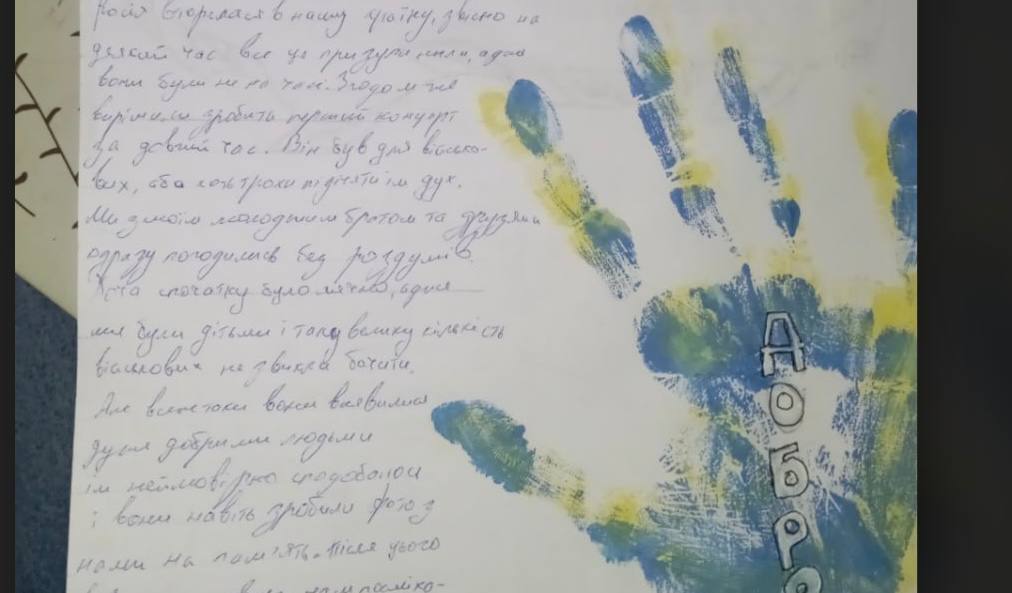 Росія вторглася в нашу країну, звісно на
деякий час все це призупинили, адже
вони були не на часі. Згодом же
вирішили зробити перший концерт
за довгий час. Він був для військо-
вих, аби хоть трохи підняти їм дух.
Ми з моїм молодшим братом та друзями
одразу погодились без роздумів.
спочатку було лячно, адже
ми були дітьми і таку велику кількість
військових не звикла бачити.
Але все-таки вони виявились
дуже добрими людьми
їм неймовірно сподобалось
і вони навіть зробили фото з
нами на пам'ять. Після цього
ДОБРО